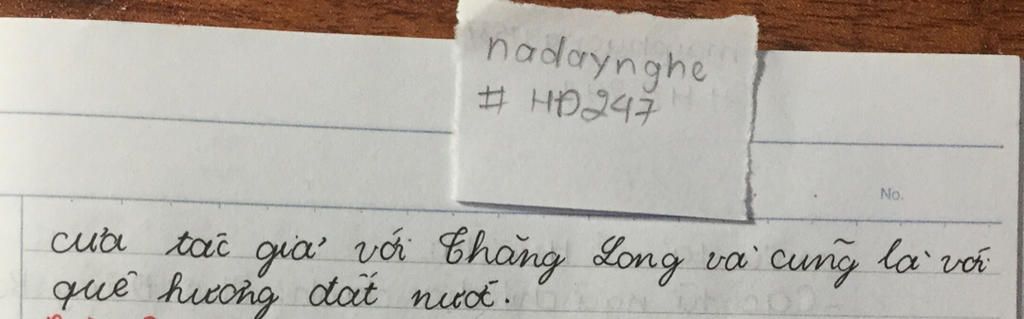 nadaynghe
# HĐ247
No.
của tác giả với Thăng Long và cũng là với
quê hương đất nước.